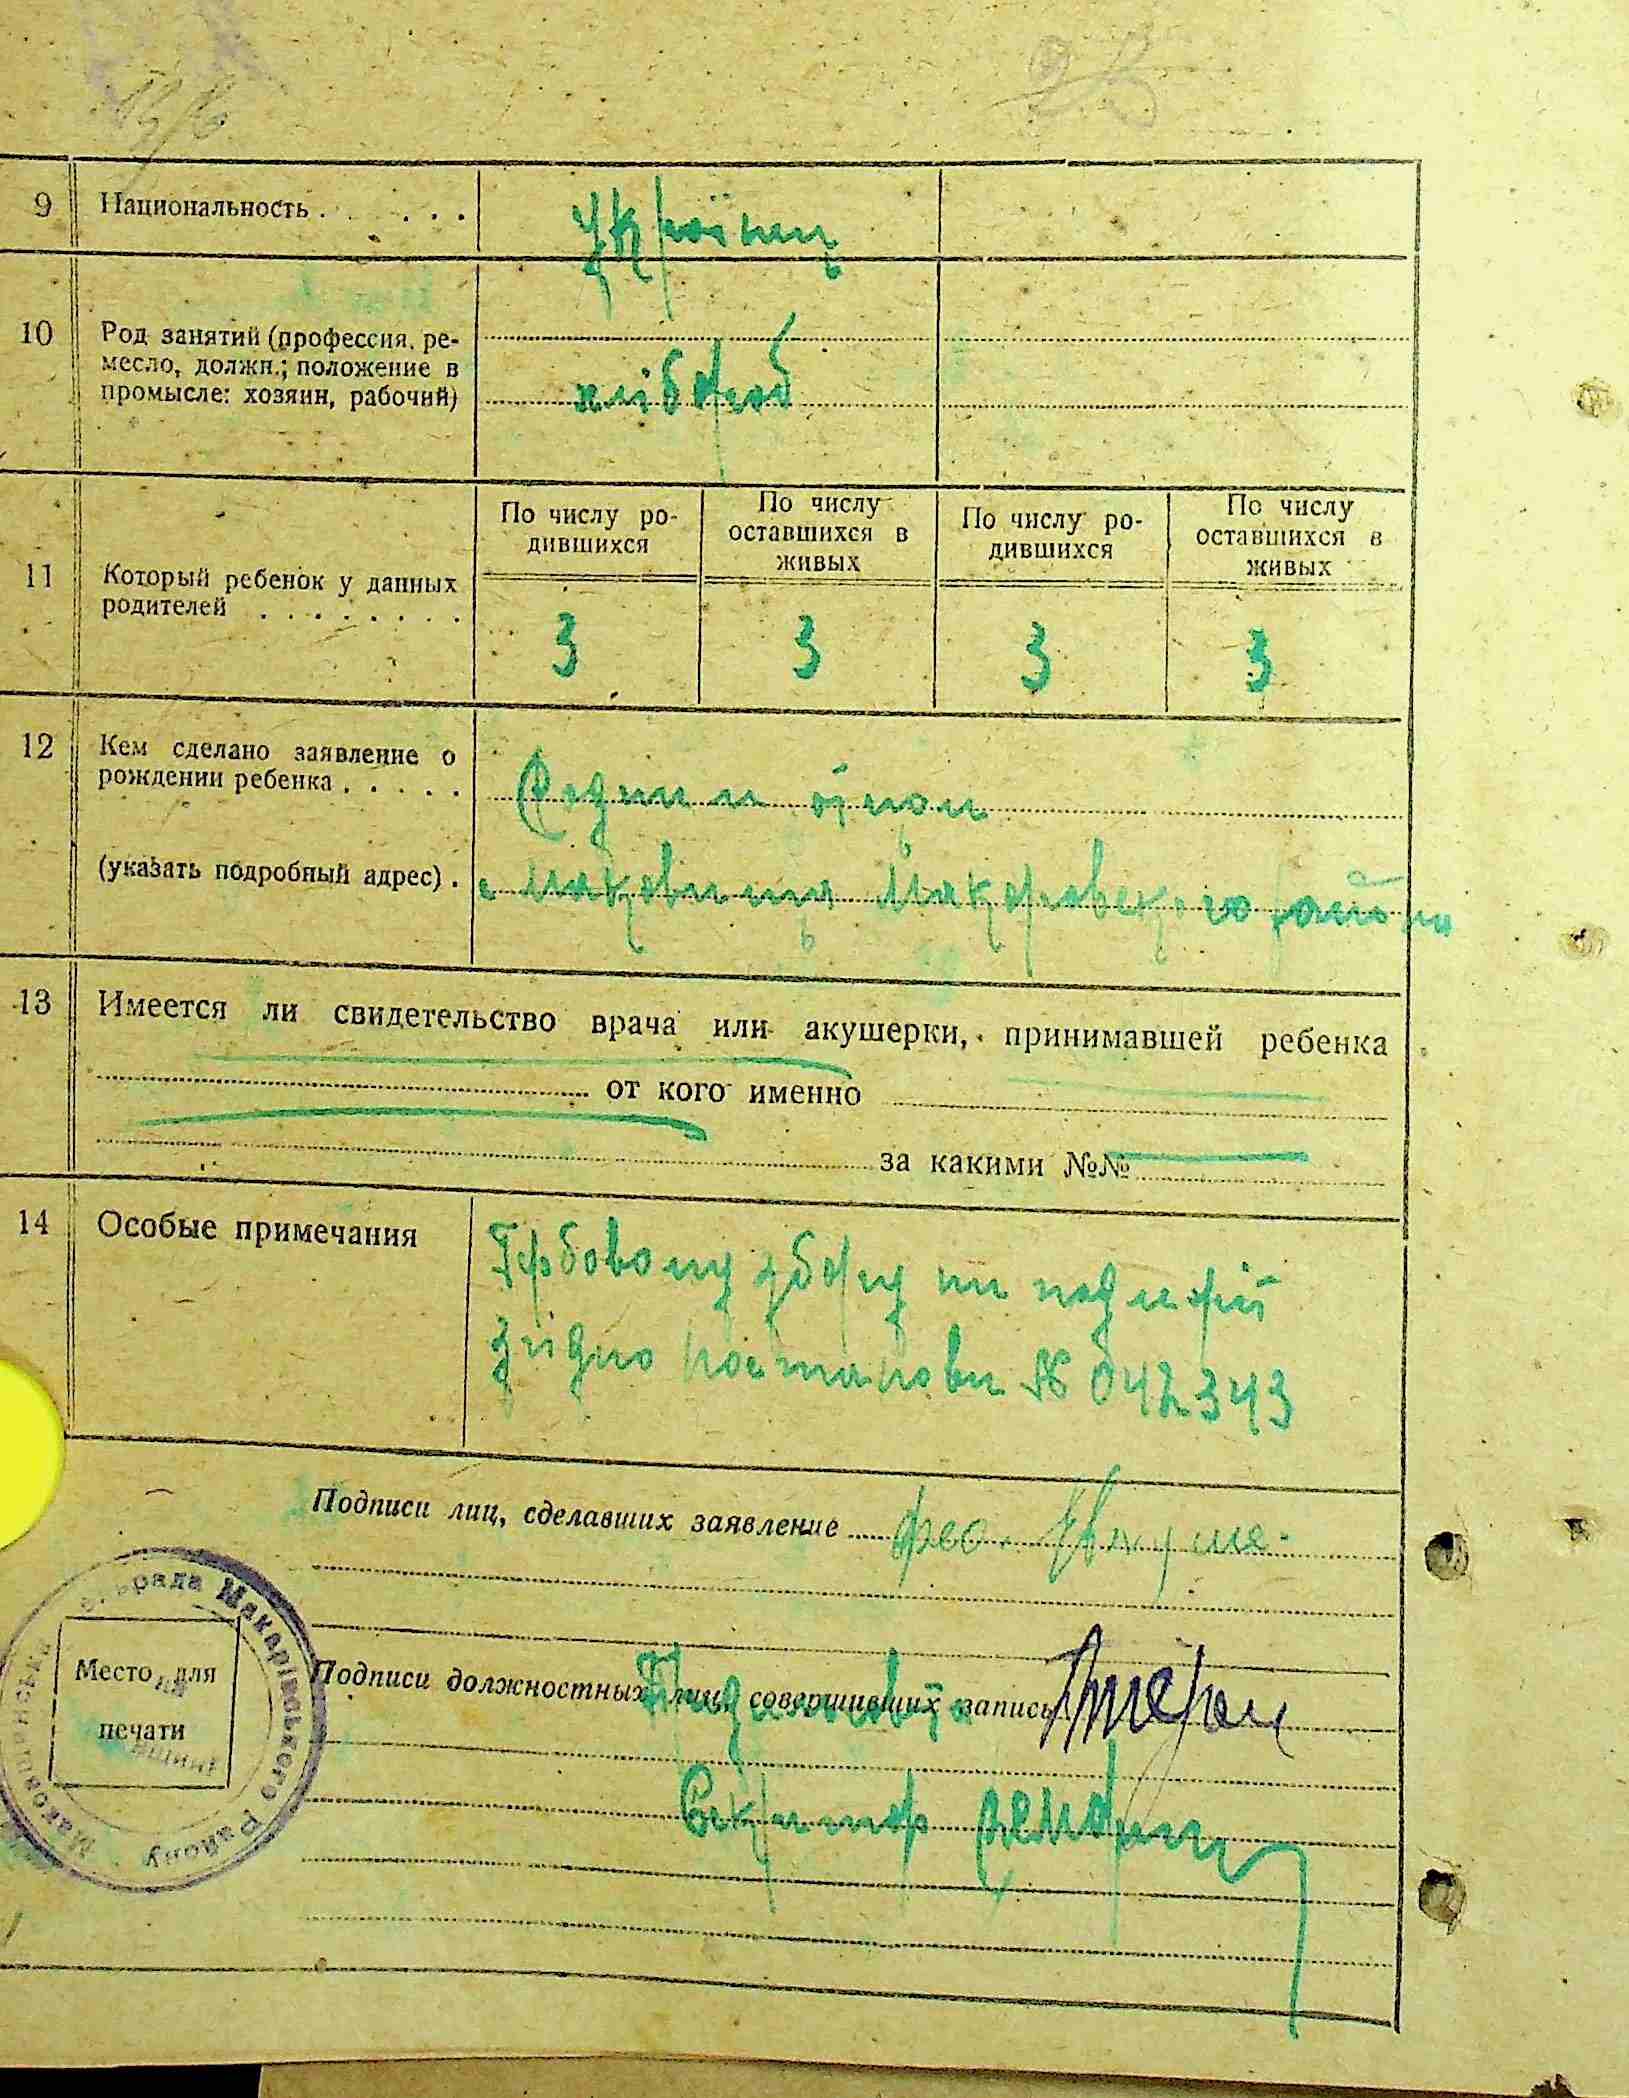 9 Национальность . . . . . . українец
10 Род занятий (профессия, ре-
месло, должн.; положение в
промысле: хозяин, рабочий) хлібороб
11 Который ребенок у данных
родителей . . . . . . . .
По числу ро-
дившихся
По числу
оставшихся в
живых
По числу ро-
дившихся
По числу
оставшихся в
живых
3 3 3 3
12 Кем сделано заявление о
рождении ребенка . . . . .
(указать подробный адрес) .
Родним бацом
с Маковища Макаровского району
13 Имеется ли свидетельство врача или акушерки, принимавшей ребенка
от кого именно
за какими №№
14 Особые примечания
Гербовому збору не подлежій
згідно постанови № 042343
Подписи лиц, сделавших заявление
Подписи должностных лиц, совершивших запись
Секретар
Место для
печати
Маковищанська сільрада Макарівського Району